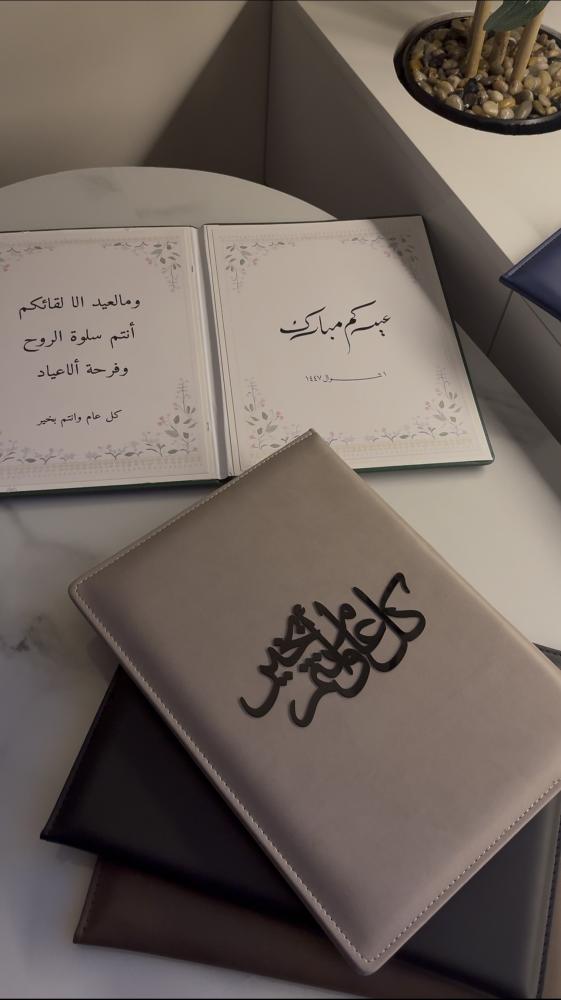 عيدكم مبارك
١ شوال ١٤٤٧
ومالعيد الا لقائكم
أنتم سلوة الروح
وفرحة ألاعياد
كل عام وانتم بخير
كل عام وأنتم بخير